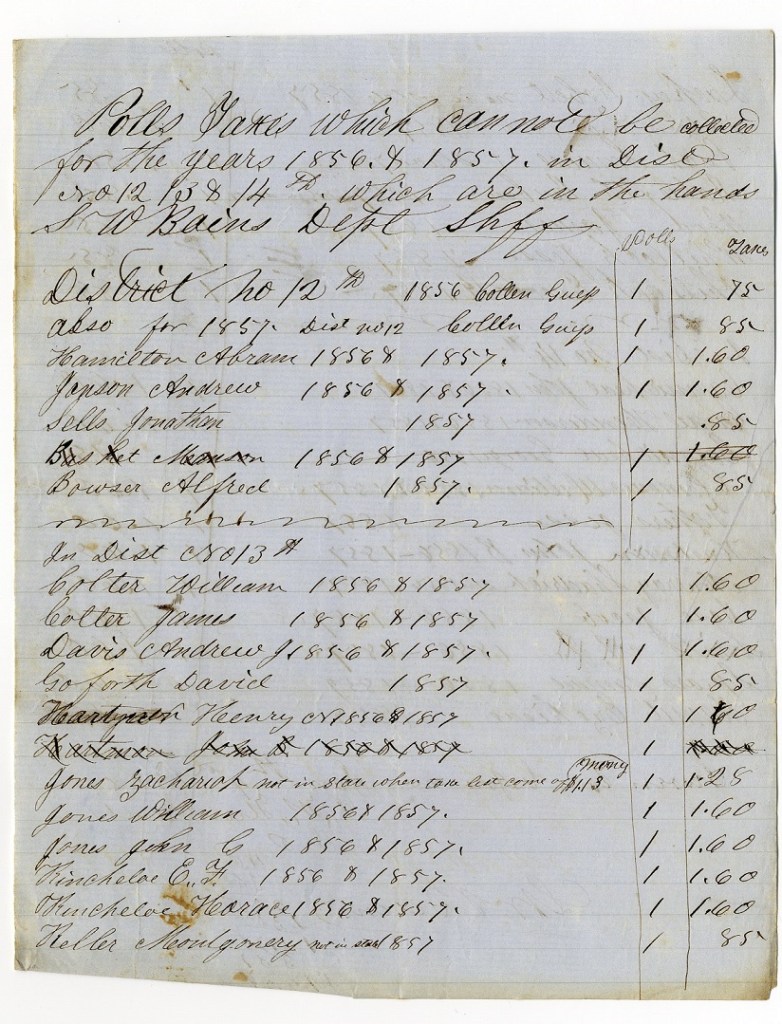 Polls Taxes which cannot be collected
for the years 1856. & 1857. in Dist
No 12 13 & 14th. which are in the hands
S W Bains Dept Shff
Polls Taxes
District No 12th 1856 Collen Guess 1 75
also for 1857. Dist no 12 Collen Guess 1 85
Hamilton Abram 1856 & 1857. 1 1.60
Janson Andrew 1856 & 1857. 1 1.60
Sells Jonathan 1857 .85
1856 & 1857 1 1.60
Bowser Alfred 1857. 1 85
In Dist No 13th
Colter William 1856 & 1857 1 1.60
Colter James 1856 & 1857 1 1.60
Davis Andrew J. 1856 & 1857. 1 1.60
Goforth David 1857 1 85
Henry 1856 & 1857 1 1 60
Hartman John 1856 & 1857 1
Jones Zachariah not in state when taxe list come 1.13 1 1.28
Jones William 1856 & 1857. 1 1.60
Jones John G 1856 & 1857. 1 1.60
Kincheloe E. F. 1856 & 1857. 1 1.60
Kincheloe Horace 1856 & 1857. 1 1.60
Keller Montgomery not in state 1857 1 85